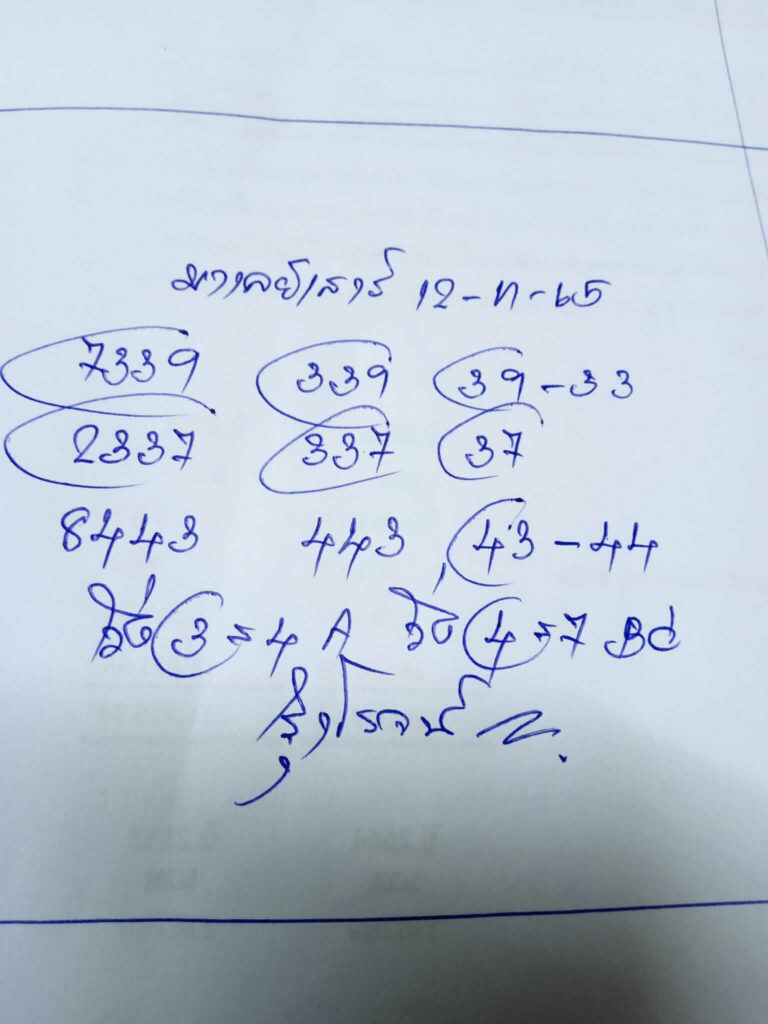 มาเลย์เสาร์ 12-ก-65
7339 339 39-33
2337 337 37
8443 443 43-44
วิ่ง 3=4 A วิ่ง 4=7 BC